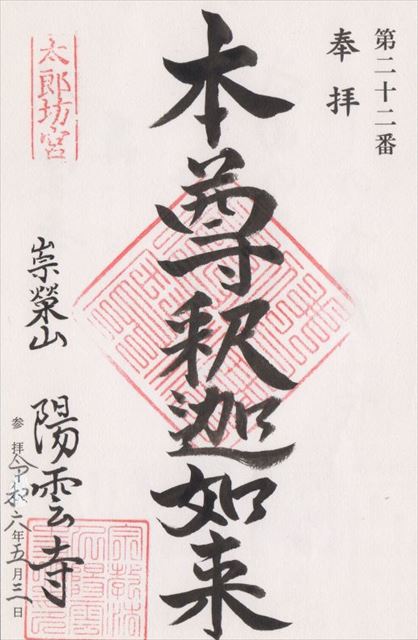 第二十二番
奉拝
本尊釈迦如来
太郎坊宮
崇榮山
陽雲寺
参拝令和六年五月三日